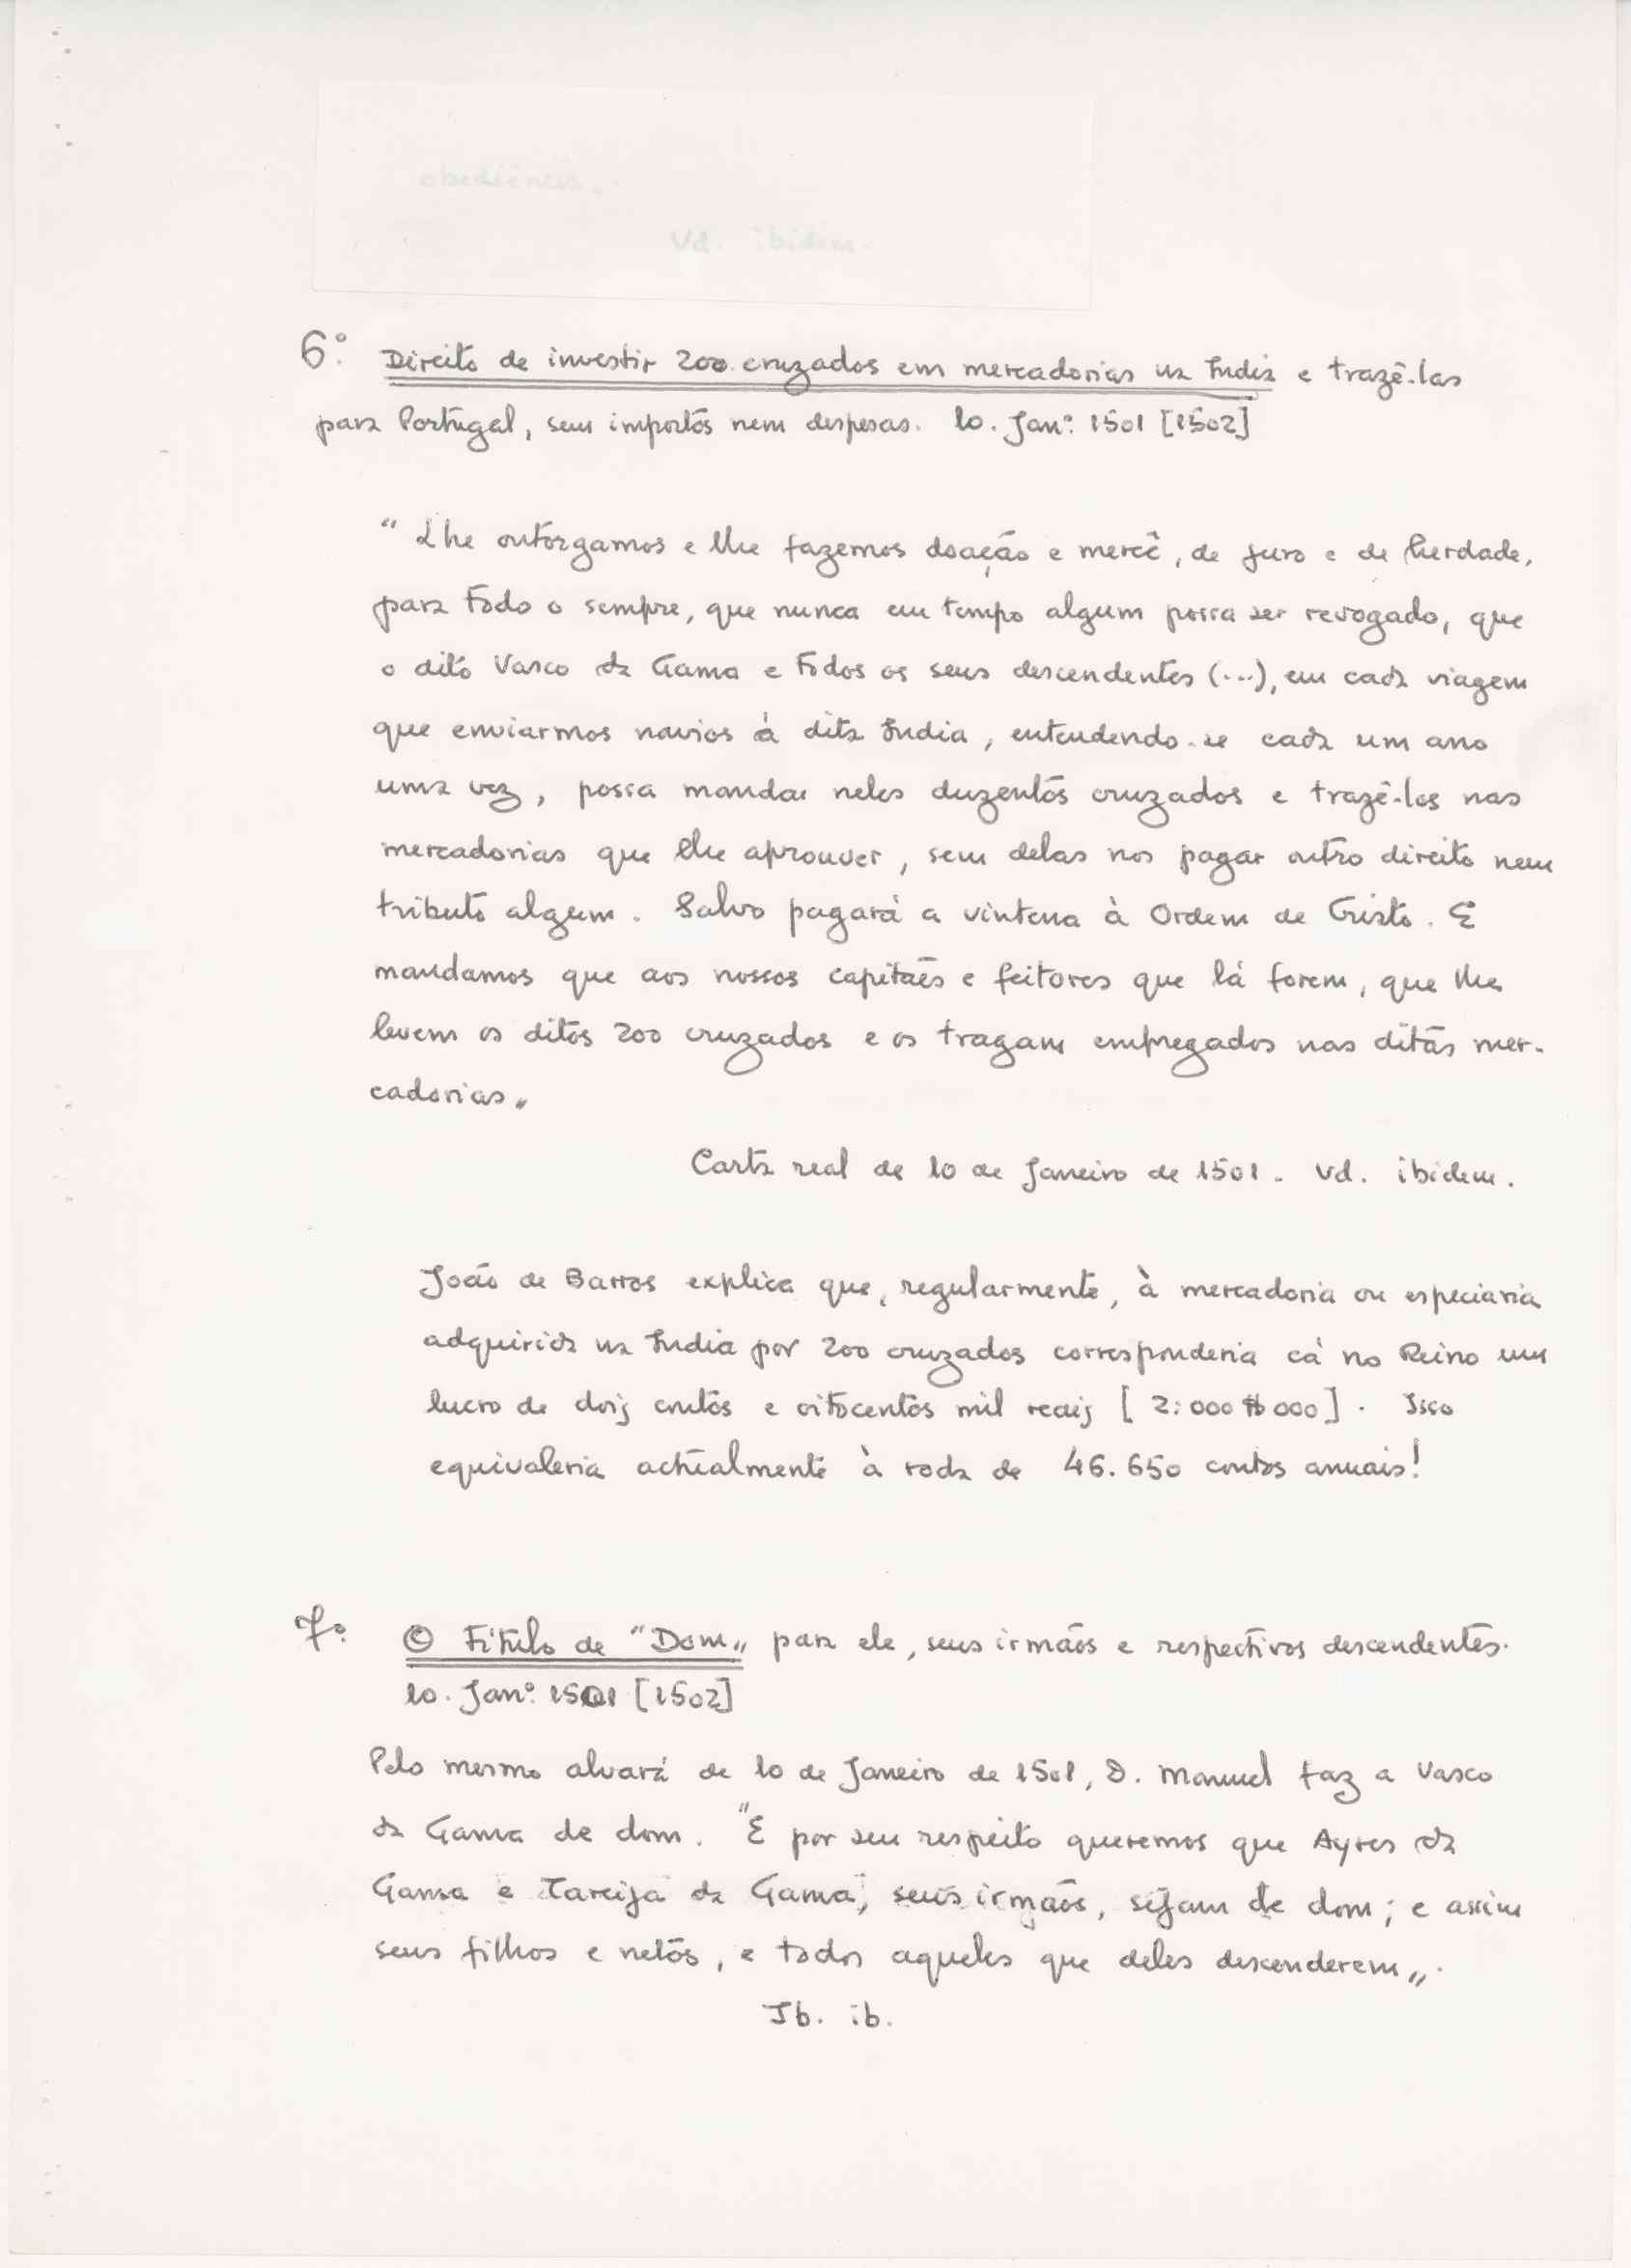 obediência.
Vd. ibidem.
6º. Direito de investir 200 cruzados em mercadorias na India e trazê-las
para Portugal, sem impostos nem despesas. 10. Janº. 1501 [1502]
" Lhe outorgamos e lhe fazemos doação e mercê, de juro e de herdade,
para todo o sempre, que nunca em tempo algum possa ser revogado, que
o dito Vasco da Gama e todos os seus descendentes (...), em cada viagem
que enviarmos navios à dita India, entendendo-se cada um ano
uma vez, possa mandar neles duzentos cruzados e trazê-los nas
mercadorias que lhe aprouver, sem delas nos pagar outro direito nem
tributo algum. Salvo pagará a vintena à Ordem de Cristo. E
mandamos que aos nossos capitães e feitores que lá forem, que lhe
levem os ditos 200 cruzados e os tragam empregados nas ditas mer-
cadorias"
Carta real de 10 de Janeiro de 1501. Vd. ibidem.
João de Barros explica que, regularmente, à mercadoria ou especiaria
adquirida na India por 200 cruzados corresponderia cá no Reino um
lucro de dois contos e oitocentos mil reais [ 2:000$000]. Isso
equivaleria actualmente à roda de 46.650 contos anuais!
7º. O Título de "Dom" para ele, seus irmãos e respectivos descendentes.
10. Janº. 1501 [1502]
Pelo mesmo alvará de 10 de Janeiro de 1501, D. Manuel faz a Vasco
da Gama de dom. "E por seu respeito queremos que Ayres da
Gama e Tareija da Gama, seus irmãos, sejam de dom; e assim
seus filhos e netos, e todos aqueles que deles descenderem".
Ib. ib.